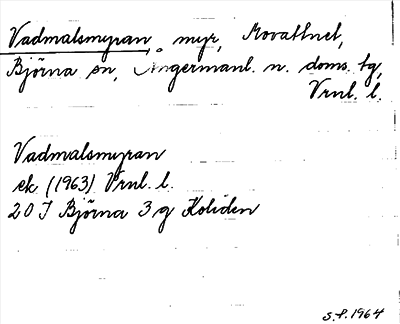 Vadmalsmyran, myr, Movattnet,
Björna sn, Ångermanl. n. doms. tg,
Vrnl. l.
Vadmalsmyran
ek (1963) Vrnl. l.
20 I Björna 3 g Koliden
S.P. 1964